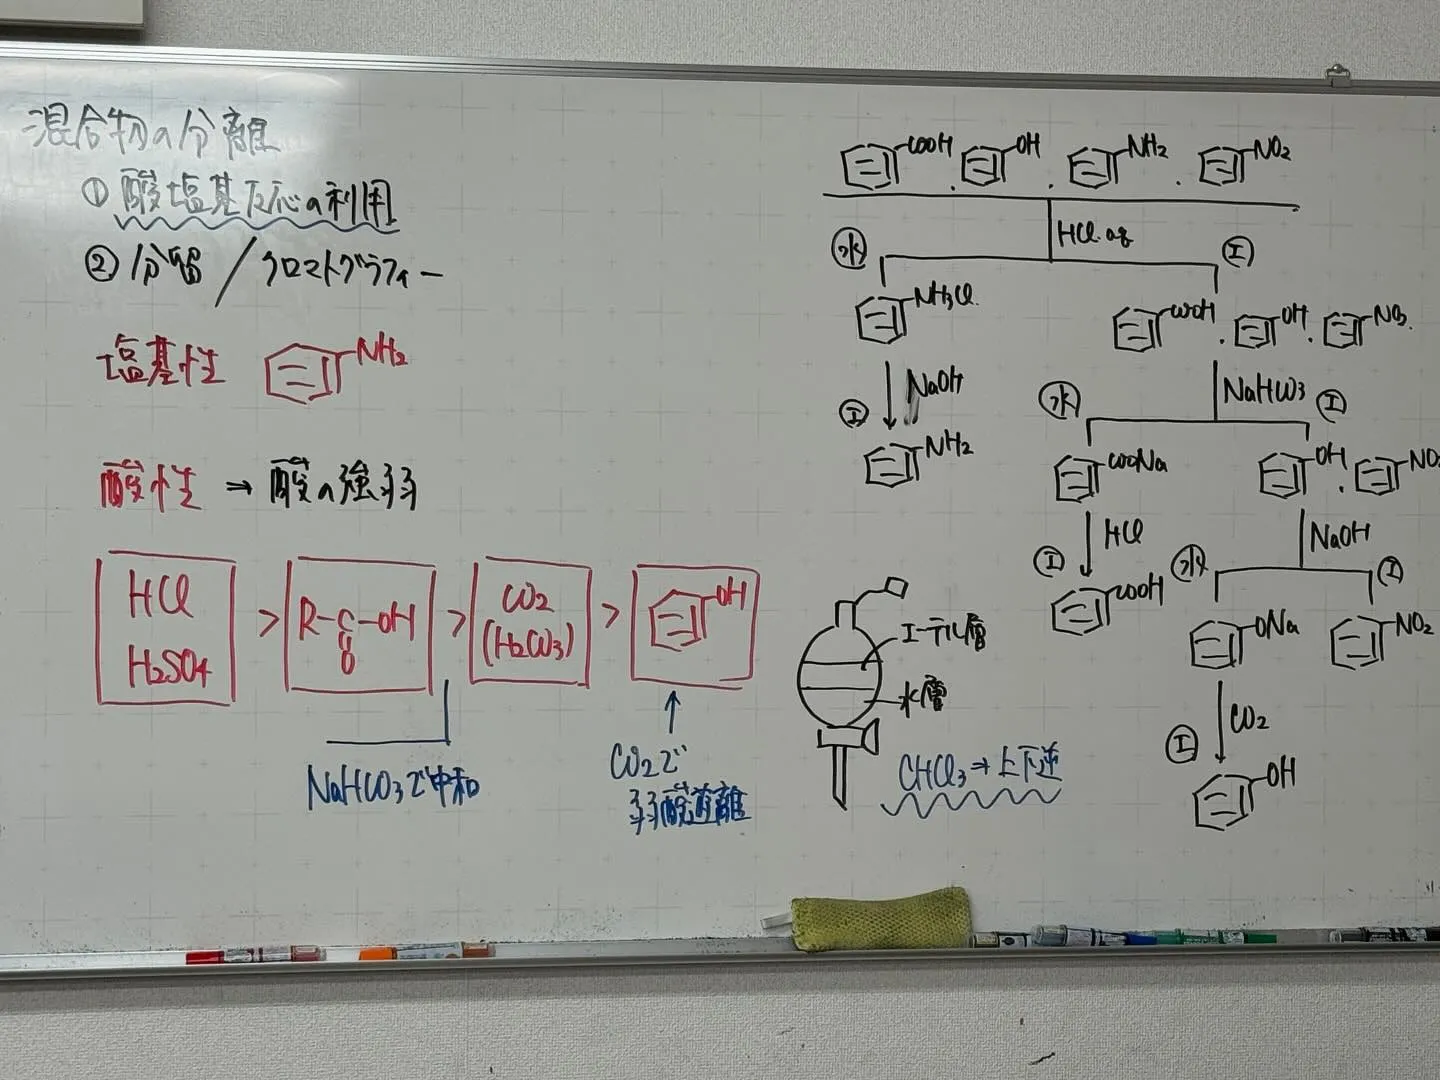 混合物の分離
①酸塩基反応の利用
②分留/クロマトグラフィー
塩基性 NH2
酸性 ⇒ 酸の強弱
HCl
H2SO4
>
R-C-OH
O
>
CO2
(H2CO3)
>
OH
NaHCO3で中和
CO2で
弱酸遊離
COOH . OH . NH2 . NO2
HCl.aq
水 エ
NH3Cl
COOH . OH . NO2.
NaOH
エ
NH2
NaHCO3
水 エ
COONa
OH . NO2
HCl
エ
COOH
NaOH
水 エ
ONa
NO2
CO2
エ
OH
エーテル層
水層
CHCl3→上下逆